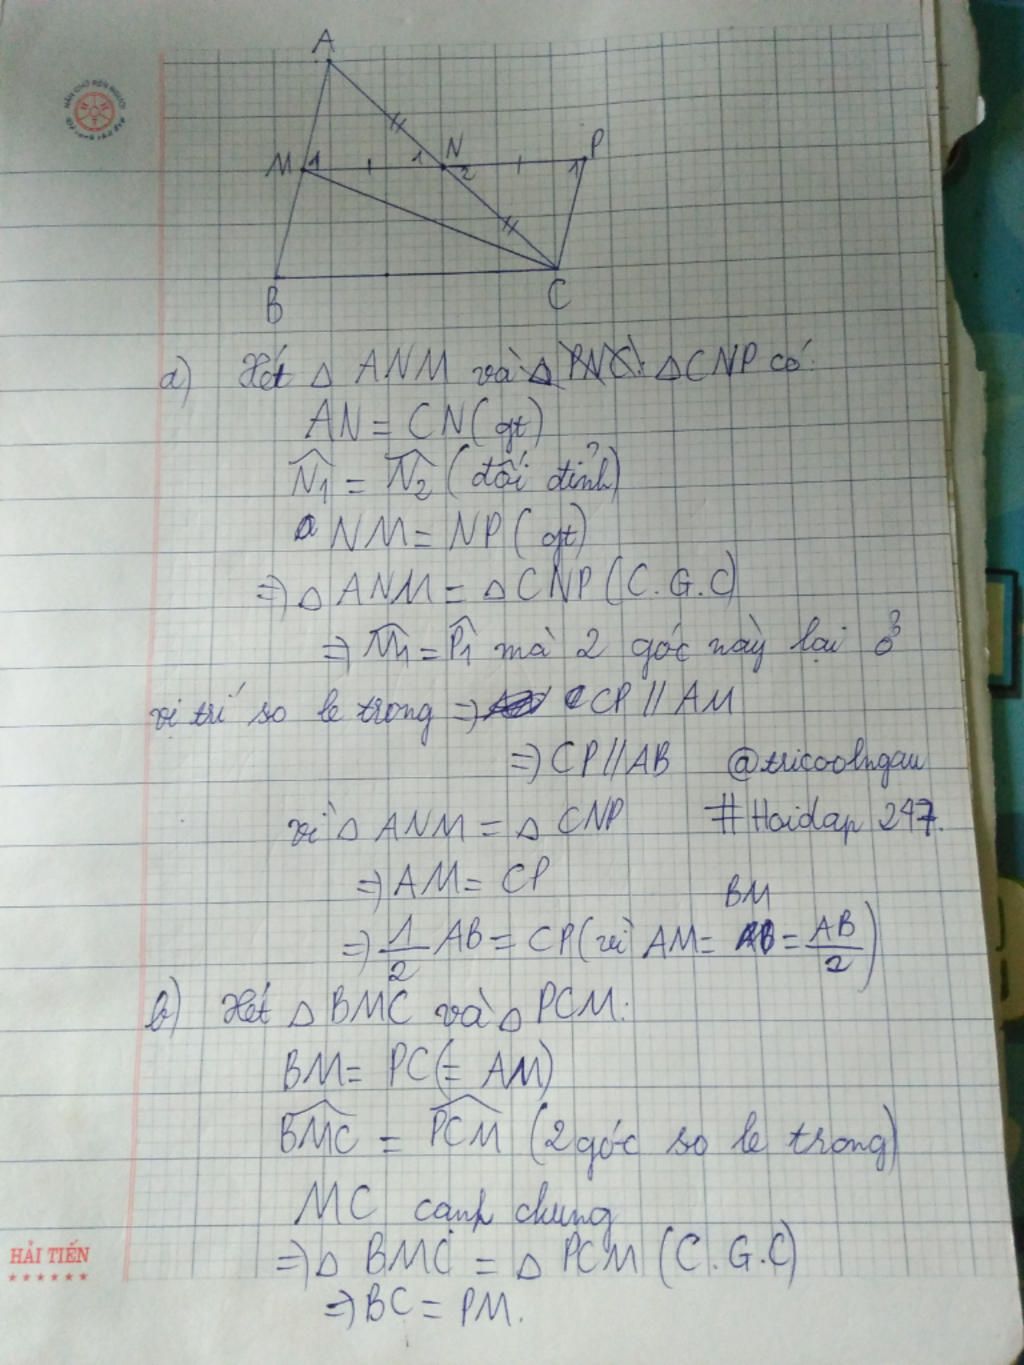 A
M 1 1 N 2 1 P
B C
a) Xét △ ANM và △ CNP có:
AN = CN (gt)
N̂1 = N̂2 (đối đỉnh)
NM = NP (gt)
⇒ △ ANM = △ CNP (C.G.C)
⇒ M̂1 = P̂1 mà 2 góc này lại ở
vị trí so le trong ⇒ CP // AM
⇒ CP // AB @tricoolngau
vì △ ANM = △ CNP #Hoidap 247.
⇒ AM = CP
⇒ 1/2 AB = CP (vì AM = BM = AB/2)
b) Xét △ BMC và △ PCM:
BM = PC (= AM)
BMC = PCM (2 góc so le trong)
MC cạnh chung
⇒ △ BMC = △ PCM (C.G.C)
⇒ BC = PM.
HẢI TIẾN